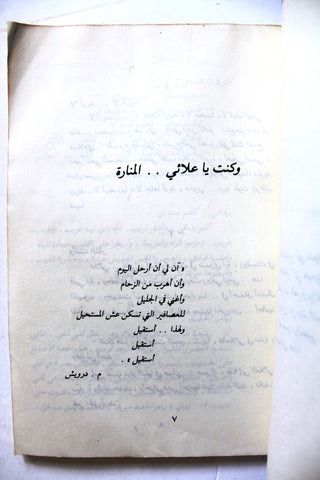 وكنت يا علائي . . المنارة
« آن لي أن أرحل اليوم
وأن أهرب من الزحام
وأغني في الجليل
للعصافير التي تسكن عش المستحيل
ولهذا . . أستقيل
أستقيل
أستقيل » .
م . درويش
٧